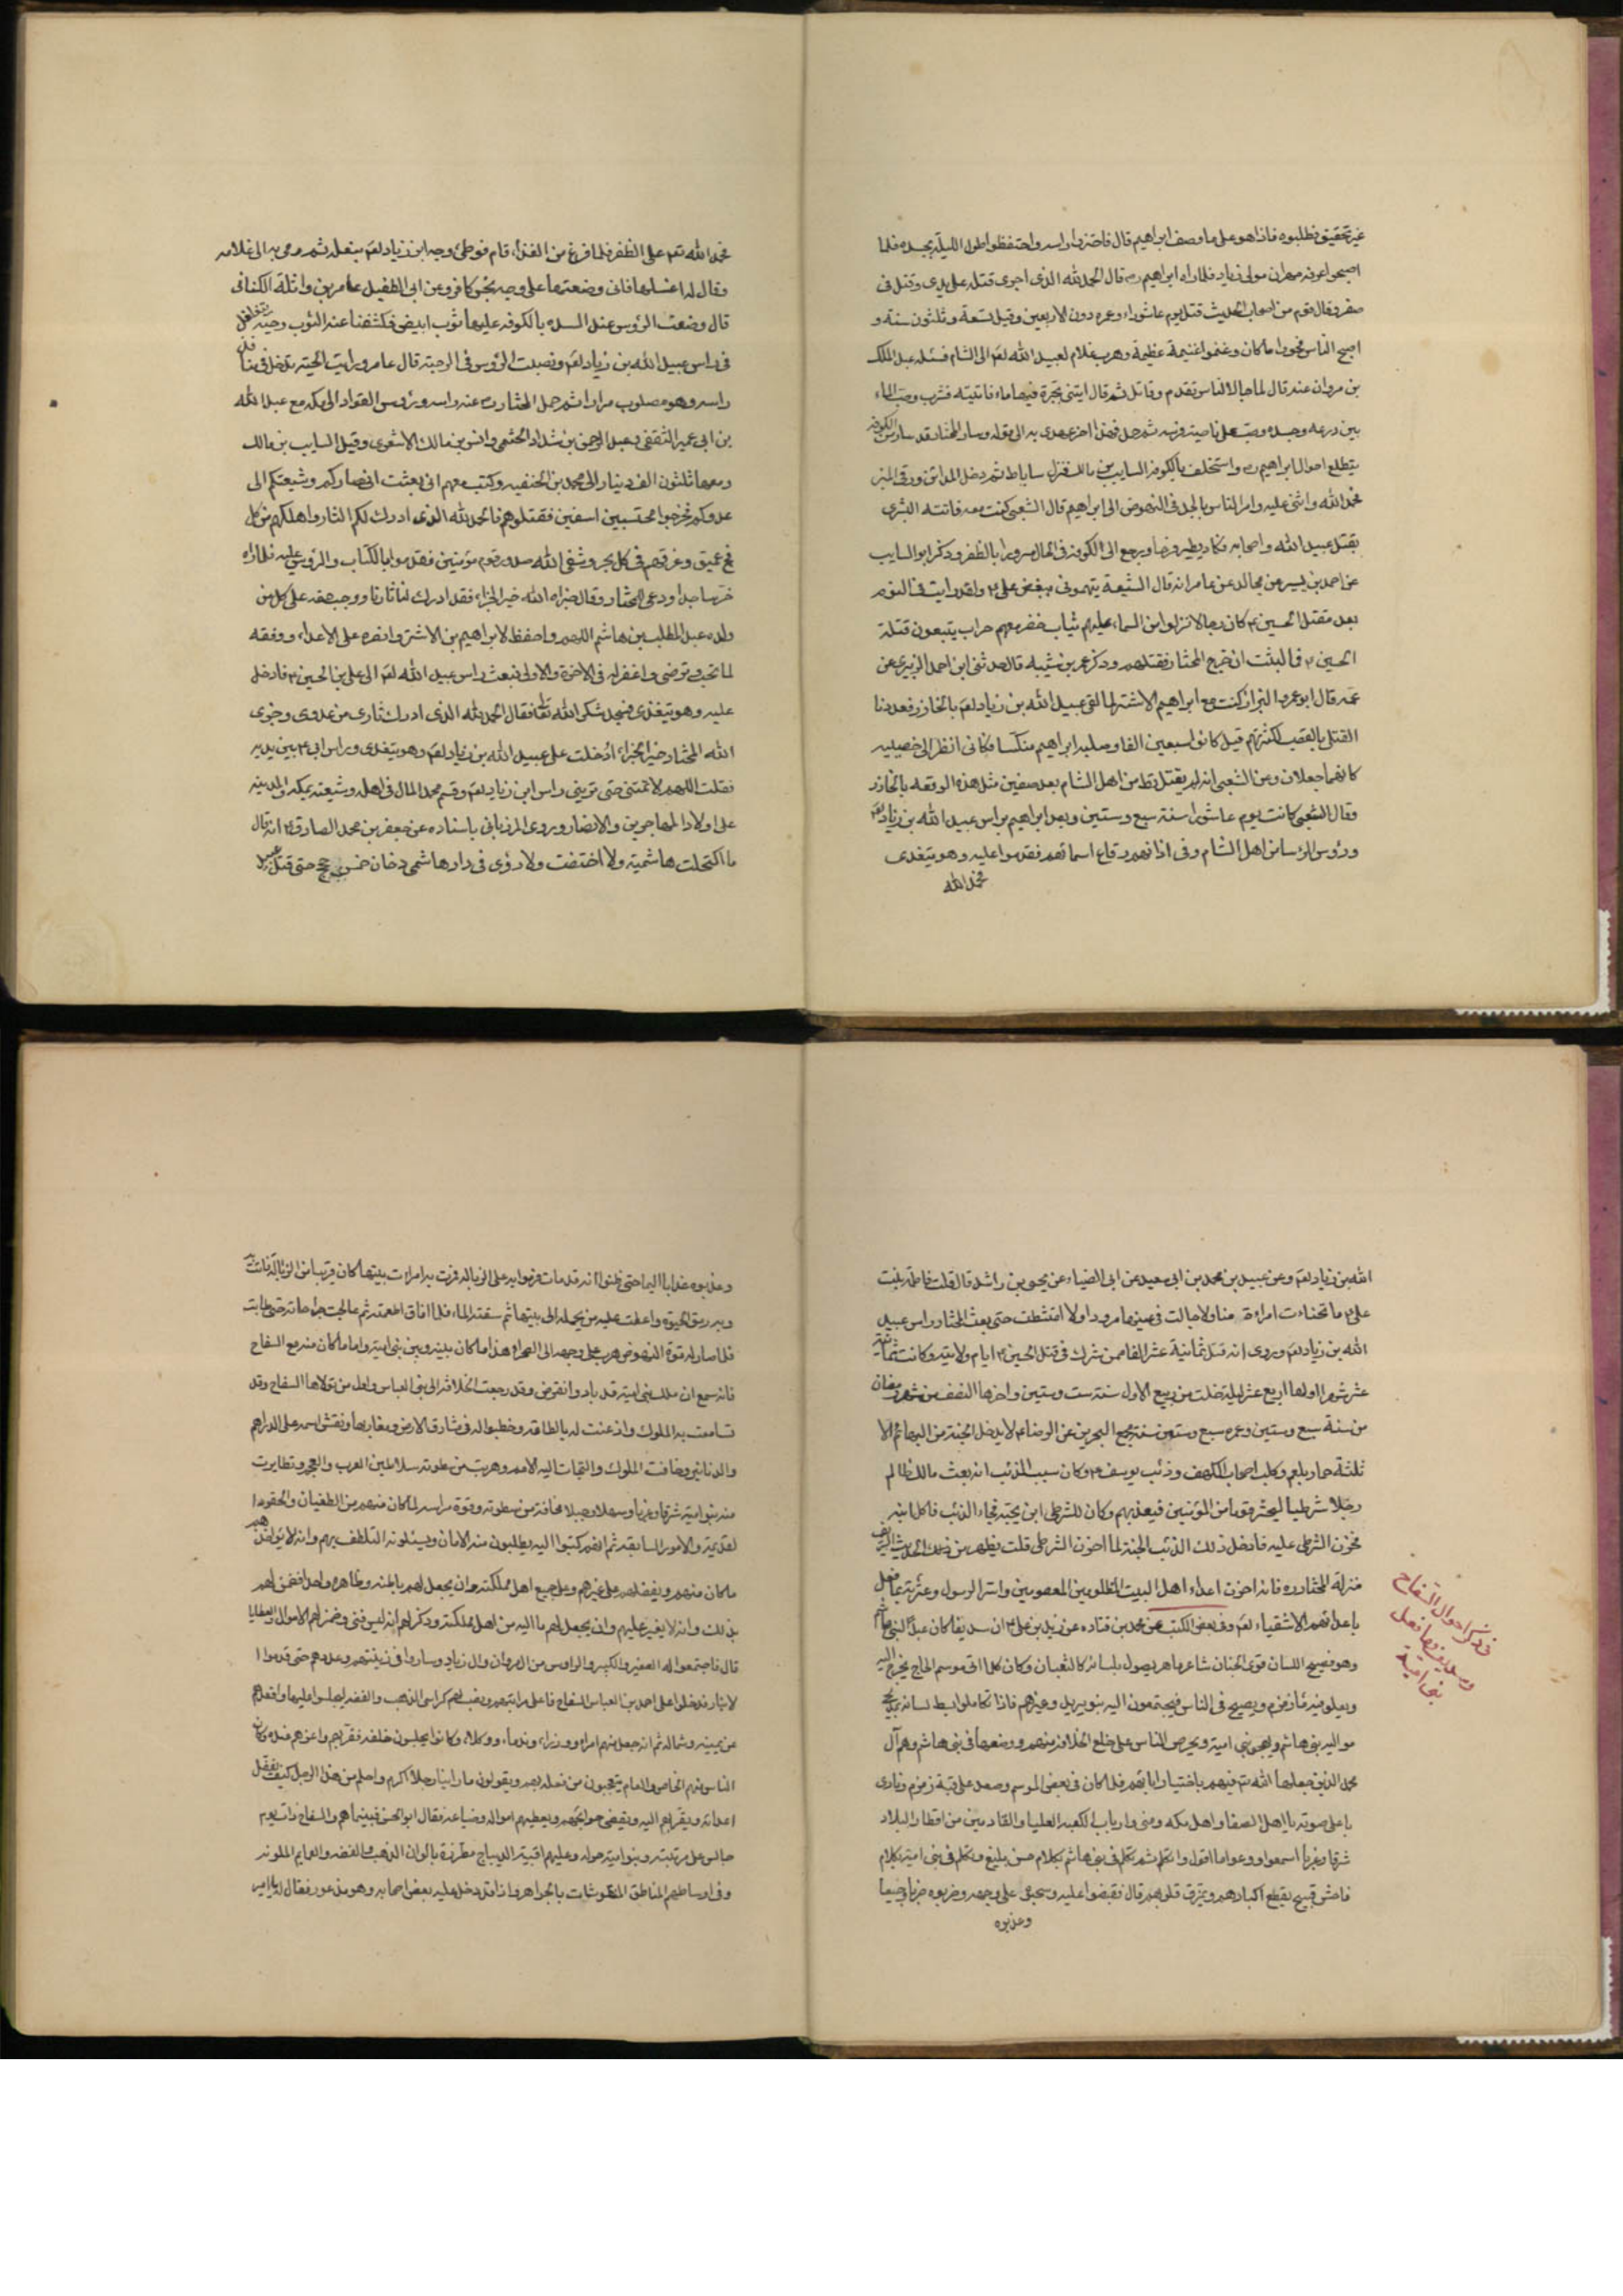 غير تحقيق فطلبوه فاذا هو على ما وصف ابراهيم قال فاحتزوا راسه واحتفظوا طول الليلة بجسده فلما
اصبحوا عرفه مهران مولى زياد فلما راه ابراهيم ره قال الحمد لله الذى اجرى قتله على يدى وقتل فى
صفر وقال قوم من اصحاب الحديث قتل يوم عاشوراء وعمره دون الاربعين وقيل تسعة وثلثون سنة و
اصبح الناس فحووا ما كان وغنموا غنيمة عظيمة وهرب غلام لعبيد الله لعم الى الشام فسئله عبد الملك
بن مروان عنه قال لما جال الناس تقدم وقاتل ثم قال ايتنى بجرة فيها ماء فاتيته فشرب وصب الماء
بين درعه وجسده وصب على ناصية فرسه ثم حمل فهذا اخر عهدى به الى قوله وسار المختار قد سار من الكوفة
يتطلع احوال ابراهيم ره واستخلف بالكوفة السايب بن مالك فنزل ساباط ثم دخل المداين ورقى المنبر
فحمد الله واثنى عليه وامر الناس بالجد فى النهوض الى ابراهيم قال الشعبى كنت معه فاتته البشرى
بقتل عبيد الله واصحابه فكاد يطير فرحا ورجع الى الكوفة فى الحال مسرورا بالظفر وذكر ابو السايب
عن احمد بن بشير عن مجالد عن عامر انه قال الشيعة يتهمونى ببغض على ع ولقد رايت فى النوم
بعد مقتل الحسين ع كان رجالا نزلوا من السماء عليهم ثياب خضر معهم حراب يتبعون قتلة
الحسين ع فما لبثت ان خرج المختار فقتلهم وذكر عمر بن شيبه قال حدثنى ابن احمد الزبيرى عن
عمه قال ابو عمرو البزاز كنت مع ابراهيم الاشتر لما لقى عبيد الله بن زياد لعم بالخازر فعددنا
القتلى بالقصب لكثرتهم قيل كانوا سبعين الفا وصلبه ابراهيم منكسا فكانى انظر الى خصييه
كانهما جعلان وعن الشعبى انه لم يقتل قط من اهل الشام بعد صفين مثل هذه الوقعة بالخازر
وقال الشعبى كانت يوم عاشورا سنة سبع وستين وبعث ابراهيم براس عبيد الله بن زياد لعم
ورؤس الرؤسا من اهل الشام وفى اذانهم رقاع اسمائهم فقدموا عليه وهو يتغدى
فحمد الله
فحمد الله تعم على الظفر فلما فرغ من الغداء قام فوطئ وجه ابن زياد لعم بنعله ثم رمى به الى غلامه
وقال له اغسلها فانى وضعتها على وجه نجس كافر وعن ابى الطفيل عامر بن واثلة الكنانى
قال وضعت الرؤس عند السدة بالكوفه عليها ثوب ابيض فكشفنا عنه الثوب وحية تتغلغل
فى راس عبيد الله بن زياد لعم ونصبت الرؤس فى الرحبة قال عامر ورايت الحية تدخل فى منافذ
راسه وهو مصلوب مرارا ثم حمل المختار ره عنه راسه ورؤس القواد الى مكه مع عبد الله
بن ابى عمير الثقفى وعبد الرحمن بن شداد الخثعمى وانس بن مالك الاشعرى وقيل السايب بن مالك
ومعها ثلثون الف دينار الى محمد بن الحنفيه وكتب معهم انى بعثت انصاركم وشيعتكم الى
عدوكم فخرجوا محتسبين اسفين فقتلوهم فالحمد لله الذى ادرك لكم الثار واهلكهم فى كل
فج عميق وغرقهم فى كل بحر وشفى الله صدور قوم مؤمنين فقدموا بالكتاب والرؤس عليه فلما راه
خر ساجدا ودعى للمختار وقال جزاه الله خير الجزاء فقد ادرك لنا ثارنا ووجب حقه على كل من
ولده عبد المطلب بن هاشم اللهم واحفظ لابراهيم بن الاشتر وانصره على الاعداء ووفقه
لما تحب وترضى واغفر له فى الاخرة والاولى فبعث راس عبيد الله لعم الى على بن الحسين ع فادخل
عليه وهو يتغدى فسجد شكرا لله تعا فقال الحمد لله الذى ادرك ثارى من عدوى وجزى
الله المختار خير الجزاء ادخلت على عبيد الله بن زياد لعم وهو يتغدى وراس ابى ع بين يديه
فقلت اللهم لا تمتنى حتى ترينى راس ابن زياد لعم وقسم محمد المال فى اهله وشيعته بمكه والمدينه
على اولاد المهاجرين والانصار وروى المرزبانى باسناده عن جعفر بن محمد الصادق ع انه قال
ما اكتحلت هاشمية ولا اختضبت ولا رؤى فى دار هاشمى دخان خمس حجج حتى قتل عبيد
الله بن زياد لعم وعن عبيد بن محمد بن ابى سعيد عن ابى الضياء عن يحيى بن راشد قال قلت فاطمة بنت
على ع ما تحناءت امراءة منا ولا جالت فى عينها مرود ولا امتشطت حتى بعث المختار راس عبيد
الله بن زياد لعم وروى انه قتل ثمانية عشر الفا ممن شرك فى قتل الحسين ع ايام ولايته وكانت ثمانية
عشر شهرا اولها اربع عشر ليلة خلت من ربيع الاول سنة ست وستين واخرها النصف من شهر رمضان
من سنة سبع وستين وعمره سبع وستون سنة مجمع البحرين عن الرضاء لا يدخل الجنة من البهائم الا
ثلثة حمار بلعم وكلب اصحاب الكهف وذئب يوسف ع وكان سبب الذئب انه بعث مالك ظالم
رجلا شرطيا ليحشر قوما من المؤمنين فيعذبهم وكان للشرطى ابن يحبه فجاء الذئب فاكل ابنه
فحزن الشرطى عليه فادخل ذلك الذئب الجنة لما احزن الشرطى قلت يظهر من هذا الحديث الشريف
منزلة المختار ره فانه احزن اعداء اهل البيت المظلومين المعصومين واسر الرسول وعترته بما فعل
باعدائهم الاشقياء لعم وفى بعض الكتب عن محمد بن قتاده عن زيد بن على ع ان سديفا كان عبد النبى هاشم
وهو فصيح اللسان قوى الجنان شاعر ماهر يصول بلسانه كالثعبان وكان كلما اتى موسم الحاج يخرج اليه
ويعلو نشز زمزم ويصيح فى الناس فيجتمعون اليه بنو يريل وغيرهم فاذا تكاملوا بسط لسانه بمدح
مواليه بنى هاشم ويهجو بنى امية ويحرص الناس على خلع الخلافة منهم ووضعها فى بنى هاشم وهم آل
محمد الذين جعلها الله تم فيهم باختيار ابائهم فلما كان فى بعض الموسم وصعد على قبة زمزم ونادى
باعلى صوته يا اهل الصفا واهل مكه ومنى وارباب الكعبة العليا والقادمين من اقطار البلاد
شرقا وغربا اسمعوا وعوا ما اقول وانكم ثم تكلم فى بنى هاشم بكلام حسن بليغ وتكلم فى بنى امية بكلام
فاحش قبيح يقطع اكبادهم ويمزق قلوبهم قال فقبضوا عليه وسحبوه على وجهه وضربوه ضربا وجيعا
وعذبوه
فى ذكر احوال السفاح
وسديف وما فعل
بنى امية
وعذبوه عذابا اليما حتى ظنوا انه قد مات فرموا به على الزباله فمرت به امراءت بيتها كان قريبا من الزبالة فاتت
وبه رمق الحيوة واعلمت عليه من يحمله الى بيتها ثم سقته الماء فلما افاق اطعمته ثم عالجت جراحاته حتى طابت
فلما صار له قوة النهوض هرب على وجهه الى الصحراء هذا ما كان بينه وبين بنى امية واما ما كان منه مع السفاح
فانه سمع ان ملك بنى امية قد باد وانقرض وقد رجعت الخلافة الى بنى العباس واول من تولاها السفاح وقد
تسامعت به الملوك واذعنت له بالطاعه وخطبوا له فى مشارق الارض ومغاربها ونقش اسمه على الدراهم
والدنانير وخافت الملوك والتجات اليه الامم وهربت من سطوته سلاطين العرب والعجم وتطايرت
منه بنو امية شرقا وغربا وسهلا وجبلا مخافة من سطوته وقوة مراسه لما كان منهم من الطغيان والحقود
القديمة والامور السابقة ثم انهم كتبوا اليه يطلبون منه الامان ويسئلونه التلطف بهم وانه لا يؤاخذهم
ما كان منهم ويفضلهم على غيرهم وعلى جميع اهل مملكته وان يجعل لهم باطنه وظاهره واحدا فضمن لهم
بذلك وانه لا يغير عليهم وان يجعل لهم ما اليه من اهل مملكته وذكر لهم انه ليس غنى وضمن لهم الاموال والعطايا
قال فاجتمعوا اله الصغير والكبير والراوس من ال مروان وال زياد وساروا فى زينتهم وعددهم حتى قدموا
لانبار فدخلوا على احمد بن العباس السفاح فاعلى مراتبهم ونصب لهم كراسى الذهب والفضة ليجلسوا عليها وافعدهم
عن يمينه وشماله ثم انه جعل منهم امراء ووزراء وندماء ووكلاء وكانوا يجلسون خلفه فقربهم واعزهم فضله وكان
الناس منهم الخاص والعام يتعجبون من فعله بهم ويقولون ما راينا رجلا اكرم واحلم من هذا الرجل كيف يفضل
اعدائه ويقربهم اليه ويقضى حوائجهم ويعطيهم امواله وضاعه فقال ابو الحسن فبينما هم والسفاح ذات يوم
جالس على مرتبته وبنو امية حوله وعليهم اقبية الديباج مطرزة بالوان الذهب والفضه والعمايم الملونه
وفى اوساطهم المناطق المنقوشات بالجواهر واذا قد دخل عليه بعض اصحابه وهو مذعور فقال له يا امير